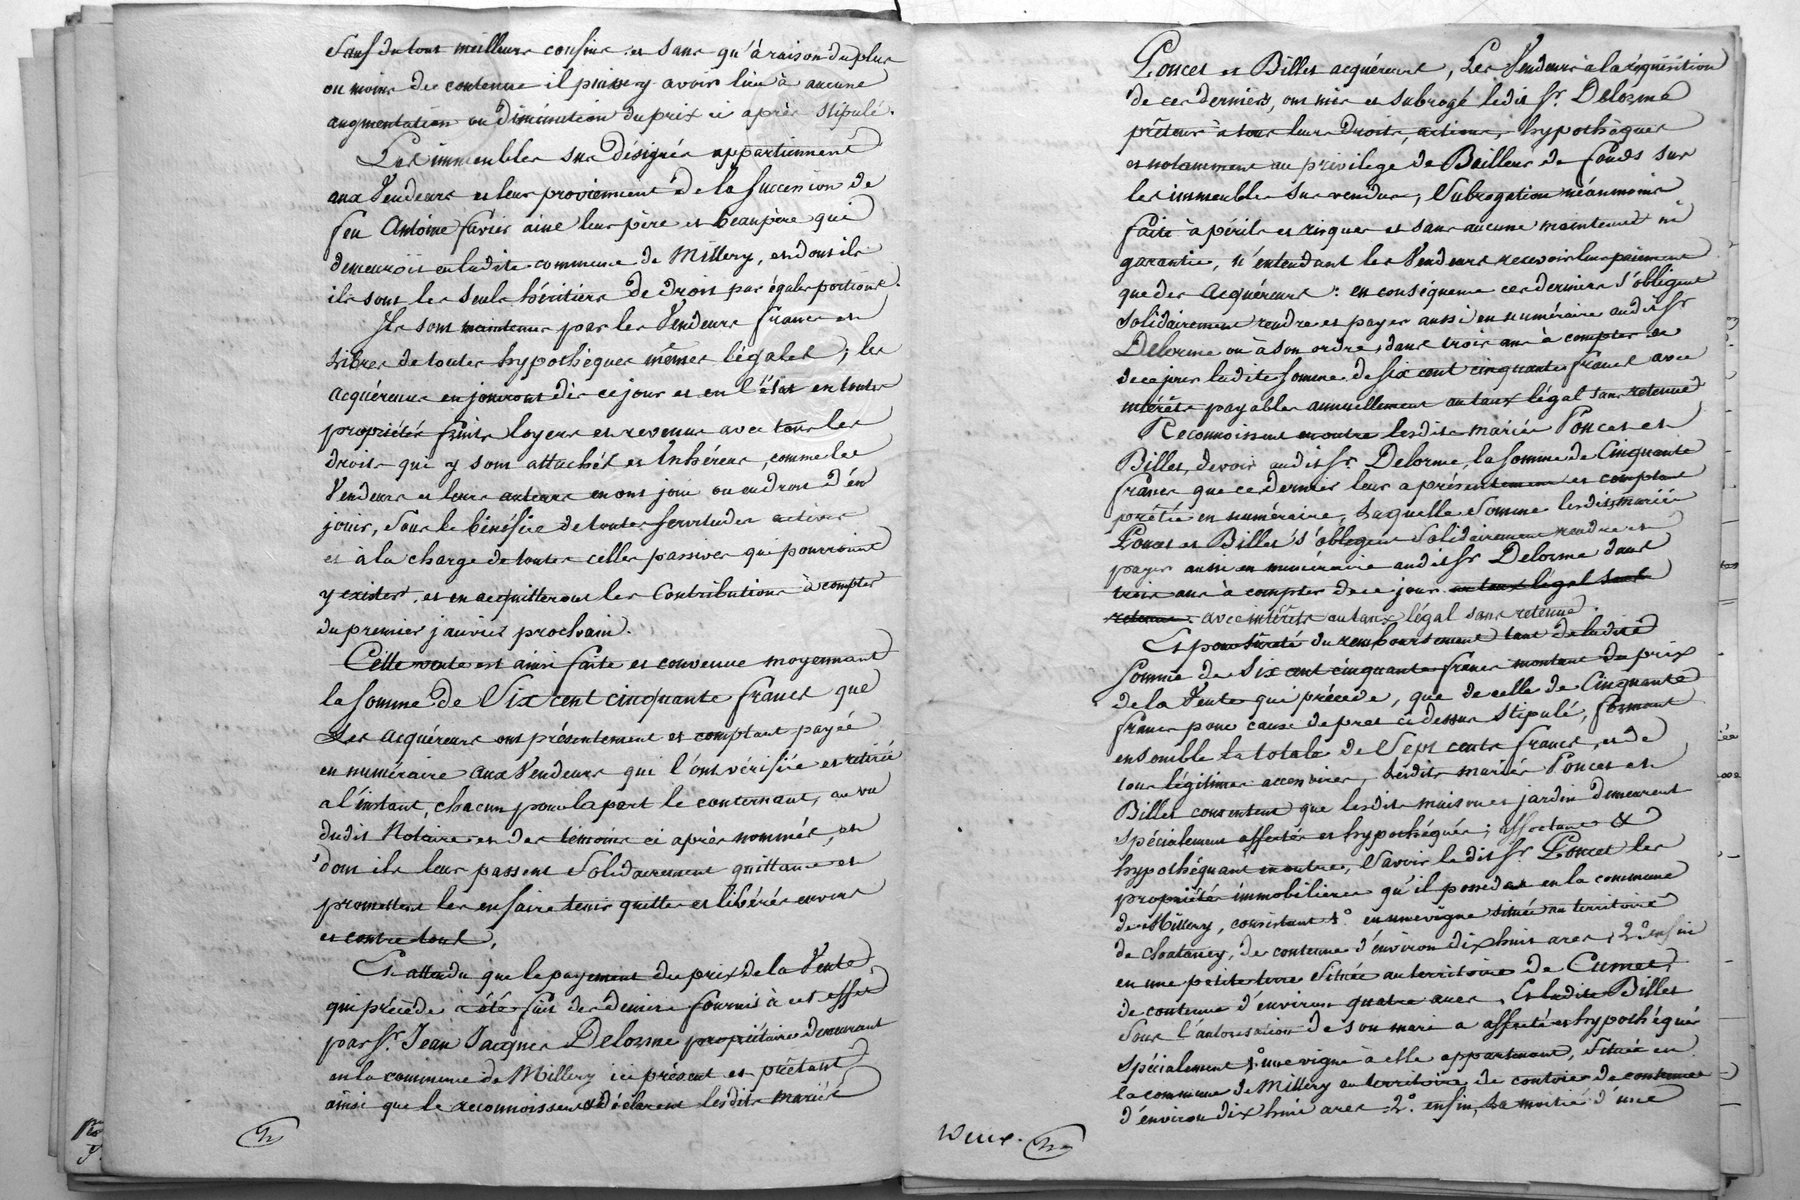 Sauf du tout meilleurs confins et sans qu'à raison du plus
ou moins de contenue il puisse y avoir lieu à aucune
augmentation ou diminution du prix ci après stipulé.
Les immeubles sus désignés appartiennent
aux Vendeurs et leur proviennent de la succession de
feu Antoine favier ainé leur père et beaupère qui
demeuroit en ladite commune de Millery, et dont ils
ils sont les seuls héritiers de droit par égales portions.
Ils sont maintenus par les Vendeurs francs et
libres de toutes hypothèques mêmes légales ; les
acquéreurs en jouiront dès ce jour et en l'état en toute
propriété fruits loyers et revenus avec tous les
droits qui y sont attachés et inhérens, comme les
Vendeurs et leurs auteurs en ont joui ou eu droit d'en
jouir, sous le bénéfice de toutes servitudes actives
et à la charge de toutes celles passives qui pourroient
y exister, et en acquitteront les contributions à compter
du premier janvier prochain.
Cette vente est ainsi faite et convenue moyennant
la somme de Six cent cinquante francs que
Les acquéreurs ont présentement et comptant payée
en numéraire aux Vendeurs qui l'ont vérifiée et retirée
a l'instant, chacun pour la part le concernant, au vu
dudit Notaire et des témoins ci après nommés, et
dont ils leur passent solidairement quittance et
promettent les en faire tenir quittes et libérés envers
et contre tout.
Et attendu que le payement du prix de la Vente
qui précède a été fait des deniers fournis à cet effet
par Sr. Jean Jacques Delorme propriétaire demeurant
en la commune de Millery ici présent et prêtant
ainsi que le reconnoissent et déclarent lesdits mariés
Poncet et Billet acquéreurs, Les Vendeurs à la réquisition
de ces derniers, ont mis et subrogé ledit Sr. Delorme
prêteur à tous leurs droits, actions, hypothèques
et notamment au privilege de Bailleur de fonds sur
les immeubles sus vendus, Subrogation néanmoins
faite à périls et risques et sans aucune maintenue ni
garantie, n'entendant les Vendeurs recevoir leur paiement
que des acquéreurs : en conséquence ces derniers s'obligent
solidairement rendre et payer aussi en numéraire audit Sr
Delorme ou à son ordre, dans trois ans à compter de
de ce jour ladite somme de six cent cinquante francs avec
intérêts payables annuellement au taux légal sans retenue.
Reconnoissent en outre lesdits mariés Poncet et
Billet, devoir audit Sr. Delorme, la somme de Cinquante
francs que ce dernier leur a présentement et comptant
prêtée en numéraire, Laquelle somme lesdits mariés
Poncet et Billet s'obligent solidairement rendre et
payer aussi en numéraire audit Sr Delorme dans
trois ans à compter de ce jour au taux legal sans
retenue avec intérêts au taux légal sans retenue.
Et pour sûreté du remboursement tant de ladite
somme de six cent cinquante francs montant du prix
de la Vente qui précède, que de celle de Cinquante
francs pour cause de pret ci dessus stipulé, formant
ensemble la totale de Sept cents francs, et de
tous légitimes accessoires, lesdits mariés Poncet et
Billet consentent que lesdits maison et jardin demeurent
spécialement affectés et hypothéqués ; affectant &
hypothéquant en outre, Savoir ledit Sr. Poncet les
propriétés immobilieres qu'il possède en la commune
de Millery, consistant 1°. en une vigne située au territoire
de Chatanay, de contenue d'environ dix huit ares, 2° enfin
en une petite terre située au territoire de Cumet,
de contenue d'environ quatre ares. Et ladite Billet
sous l'autorisation de son mari a affecté et hypothéqué
spécialement 1° une vigne à elle appartenant, située en
la commune de Millery au territoire de de contenue
d'environ dix huit ares 2°. enfin, la moitié d'une